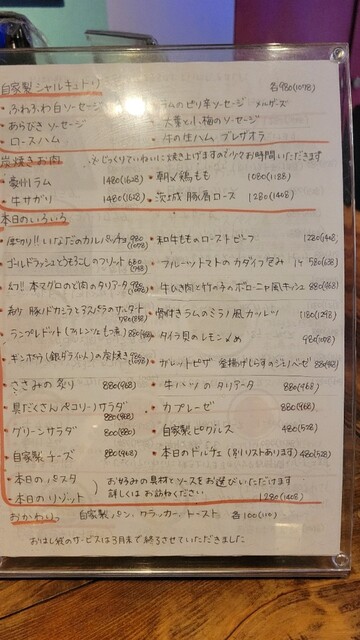 自家製シャルキュトリ 各980(1078)
・ふわふわ白ソーセージ ラムのピリ辛ソーセージ メルゲーズ
・あらびきソーセージ ・大葉と小梅のソーセージ
・ロースハム ・牛の生ハム ブレザオラ
炭焼きお肉 ※じっくりていねいに焼き上げますので少々お時間いただきます
・豪州ラム 1480(1628) ・朝〆鶏もも 1080(1188)
・牛サガリ 1480(1628) ・茨城豚肩ロース 1280(1408)
本日のいろいろ
いなだのカルパッチョ 980(1078) ・和牛もものローストビーフ
ゴールドラッシュとうもろこしのフリット ・フルーツトマトのカダイフ包み 580(638)
本マグロのど肉のタルタータ ・牛ひき肉と竹の子のボローニャ風キッシュ 880(968)
・骨付きラムのミラノ風カツレツ 1180(1298)
・ランプレドット(フィレンツェもつ煮) ・タイラ貝のレモン〆め
・ギンポウ(銀ダラ)の炭焼き ・ガレットピザ 釜揚げしらすのジェノベーゼ
・ささみの炙り 880(968) ・牛ハツのタリアータ 880(968)
・具だくさんサラダ 880(968) ・カプレーゼ 880(968)
・グリーンサラダ 800(880) ・自家製ピクルス 480(528)
・自家製チーズ 880(968) ・本日のドルチェ(別リストあります) 480(528)
・本日のパスタ お好みの具材とソースをお選びいただけます
・本日のリゾット 詳しくはお訪ねください 1280(1408)
おかわり。 自家製パン、クラッカー、トースト 各100(110)
おはし紙のサービスは3月まで終了させていただきました